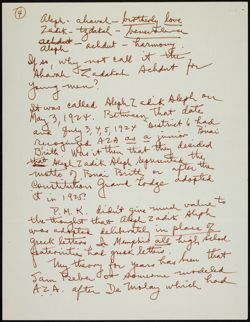 4
Aleph - ahavah - brotherly love
Zadik - tzdakah - benevolence
achdut
Aleph - achdut - harmony.
If so, why not call it the
Ahavah Zadakah Achdut for
young men?
It was called Aleph Zadik Aleph on
May 3, 1924. Between that date
and July 3, 4, 5, 1924 District 6 had
recognized AZA as a junior Bnai
Brith. Was it then that they decided
that Aleph Zadik Aleph represented the
motto of Bnai Brith or after the
Constitution Grand Lodge adopted
it in 1925?
P.M.K. didn't give much value to
the thought that Aleph Zadik Aleph
was adopted deliberately in place of
Greek letters. In Memphis all high school
fraternities had greek letters.
My theory for years has been that
Sam Beber or someone modeled
A.Z.A. after De Molay which had